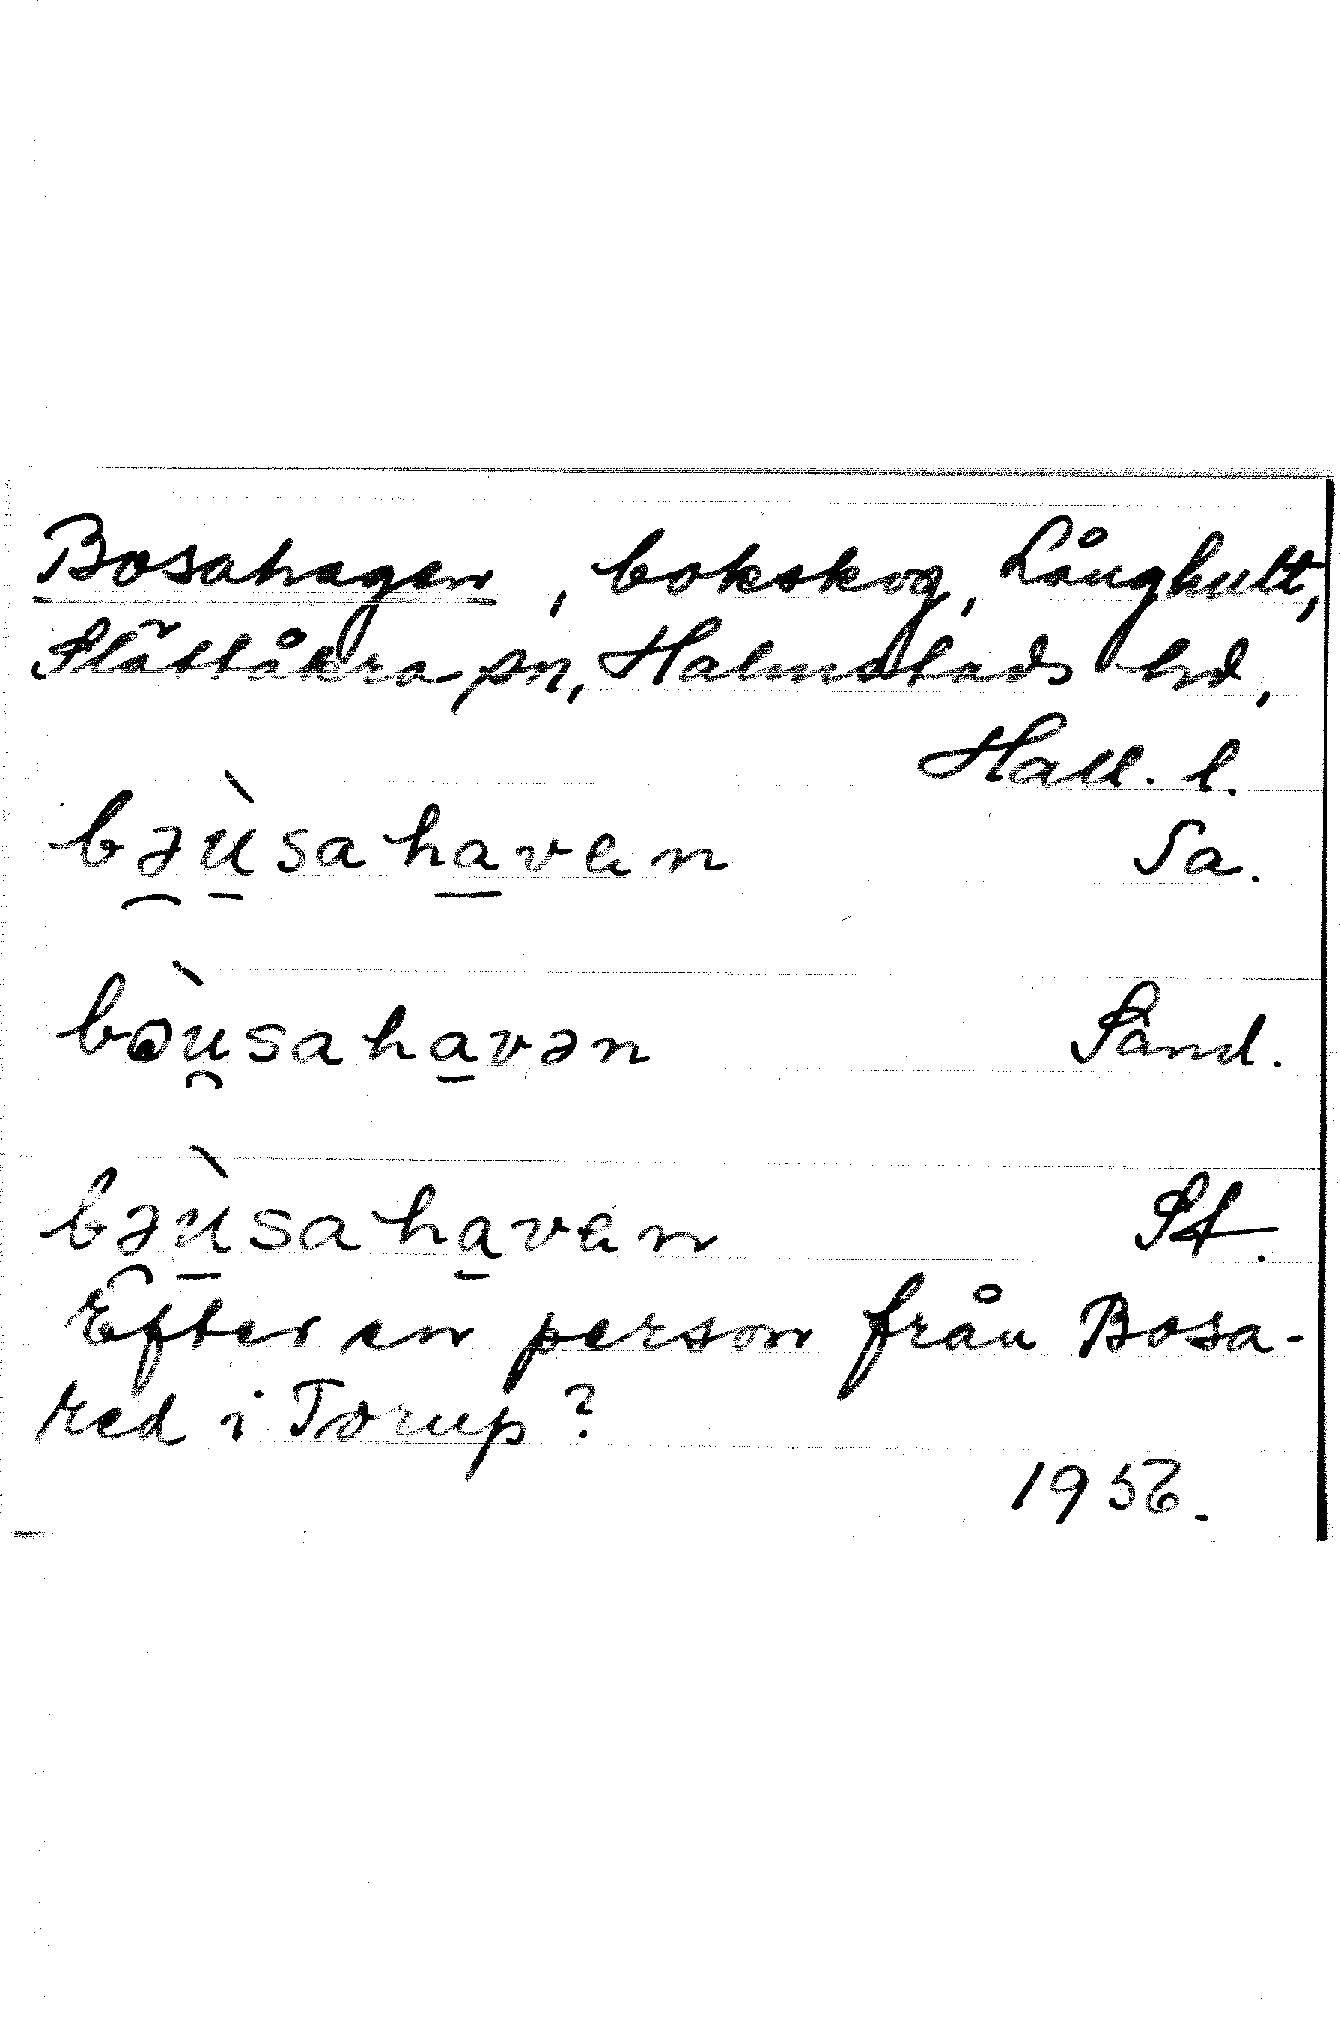 Bosahagen, bokskog, Långhult,
Slättåkra sn, Halmstads hd,
Hall. l.
bə̯ùsahavan Sa.
bəù̯sahavən Sand.
bə̯ùsahavan St.
Efter en person från Bosa-
red i Torup?
1956.